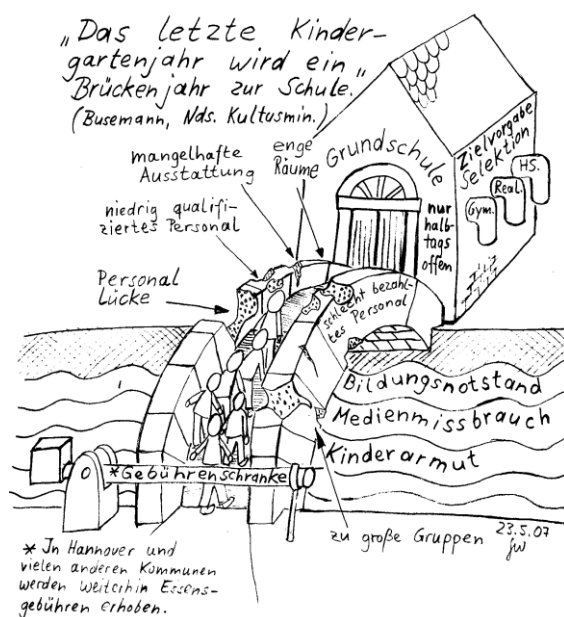 „Das letzte Kinder-
gartenjahr wird ein
Brückenjahr zur Schule.”
(Busemann, Nds. Kultusmin.)
mangelhafte
Ausstattung
enge
Räume
niedrig qualifi-
ziertes Personal
Personal
Lücke
Grundschule
nur
halb-
tags
offen
Zielvorgabe
Selektion
HS.
Real.
Gym.
schlecht bezahl-
tes Personal
Bildungsnotstand
Medienmissbrauch
Kinderarmut
*Gebührenschranke
zu große Gruppen
23.5.07
* In Hannover und
vielen anderen Kommunen
werden weiterhin Essens-
gebühren erhoben.